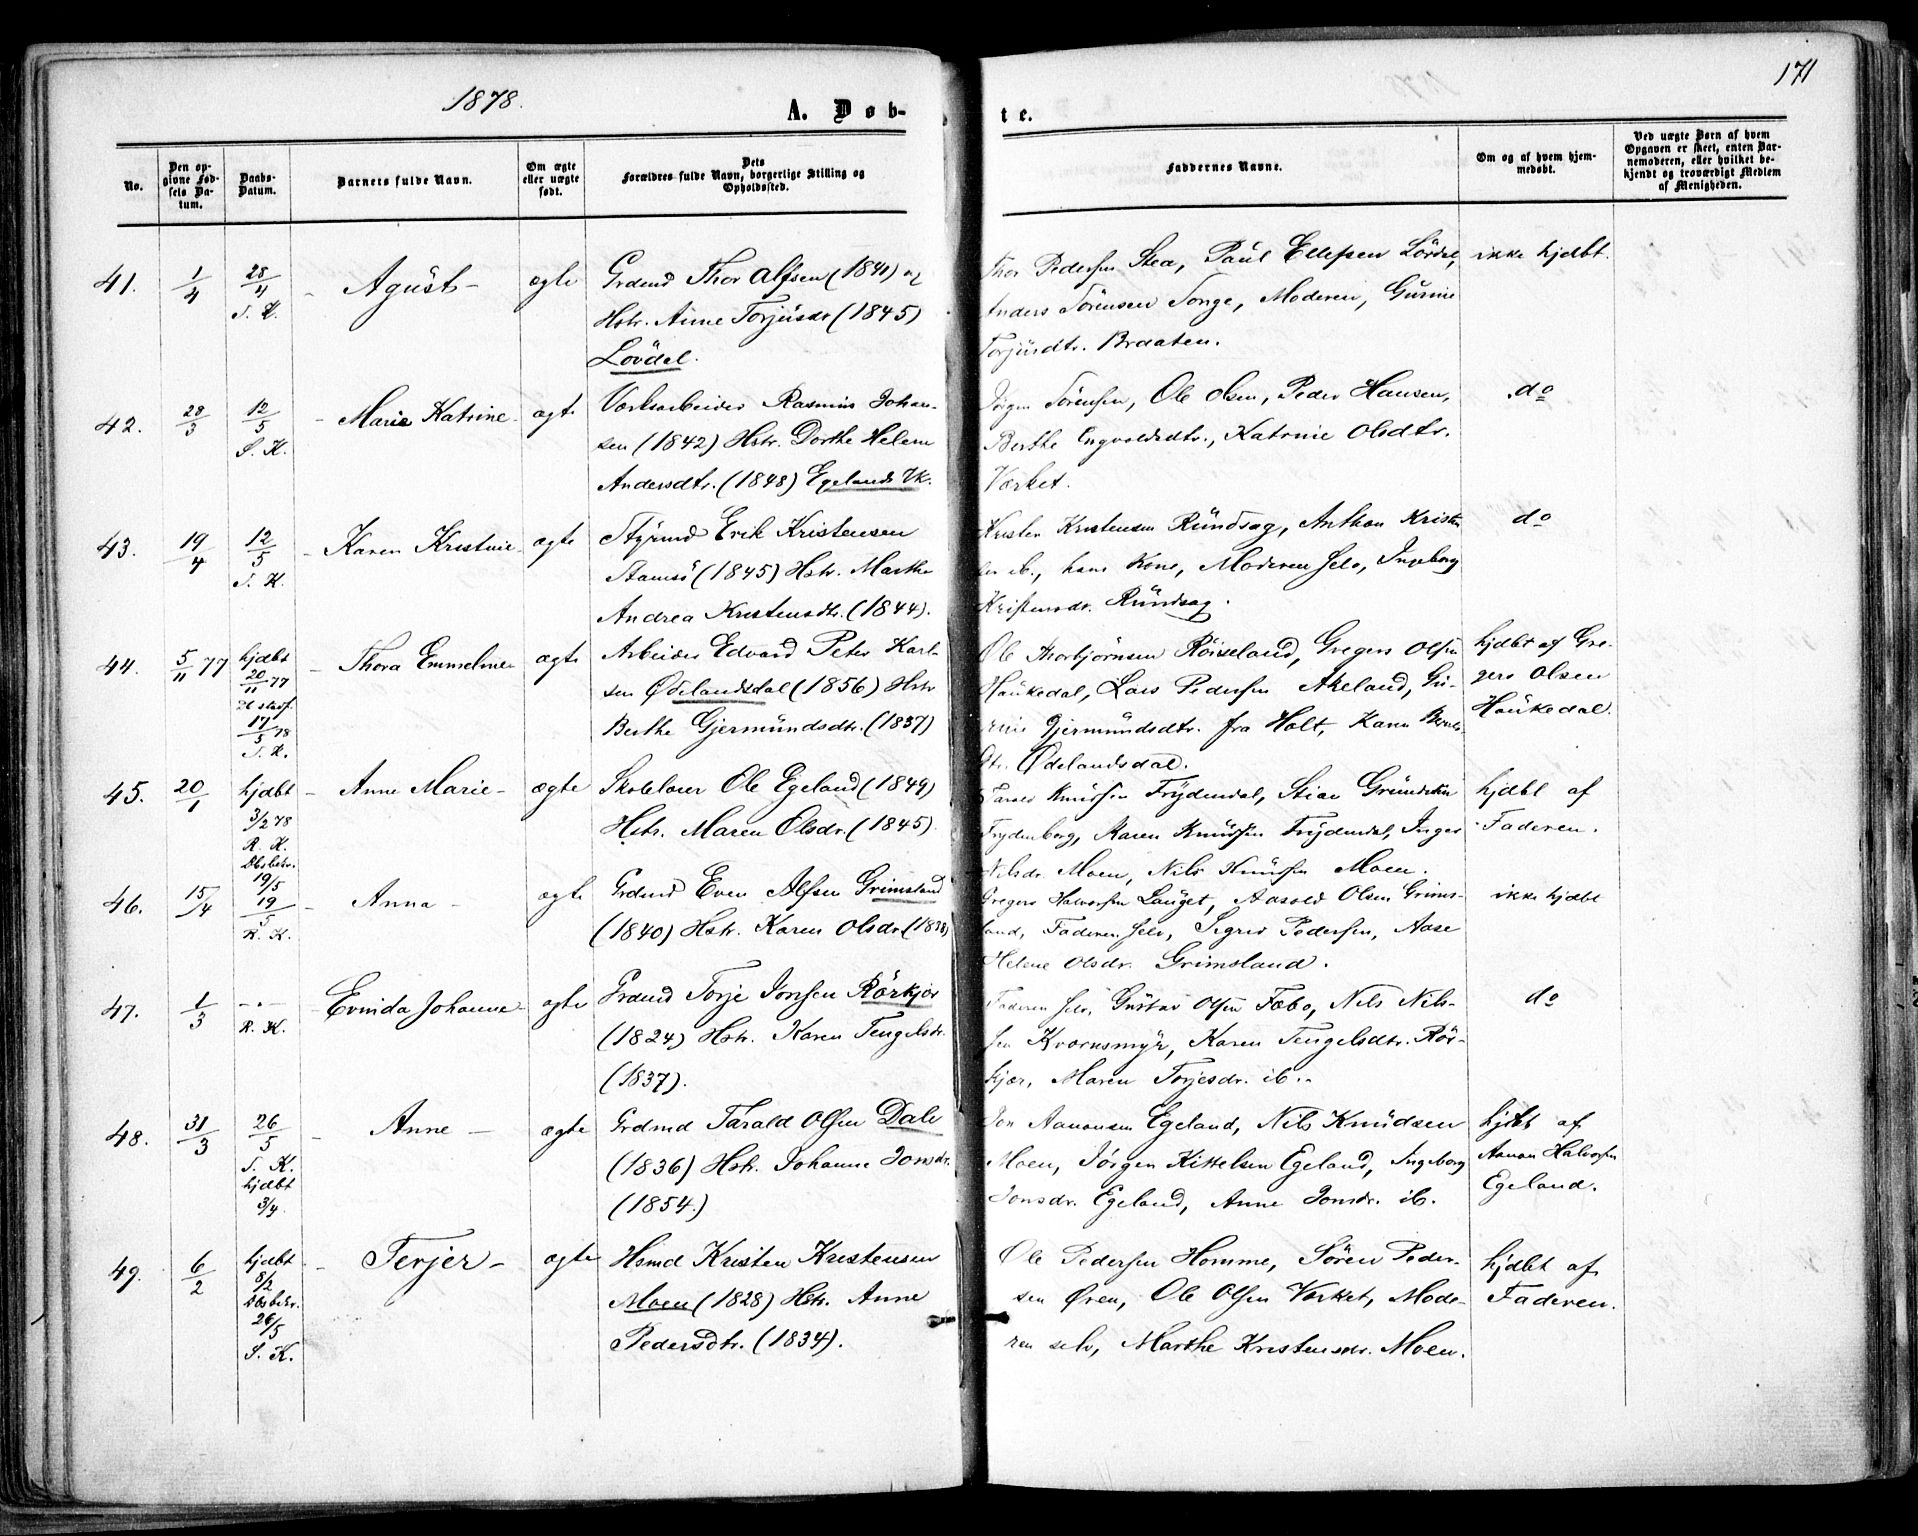 1878.
171
A. Døb-
te.
No.
Den op-
givne Fød-
sels Da-
tum.
Daabs-
Datum.
Barnets fulde Navn.
Om ægte
eller uægte
født.
Dets
Forældres fulde Navn, borgerlige Stilling og
Opholdssted.
Faddernes Navne.
Om og af hvem hjem-
medøbt.
Ved uægte Børn af hvem
Opgaven er skeet, enten Bar-
nemoderen, eller hvilket be-
kjendt og troværdigt Medlem
af Menigheden.
41.
1/4
28/4
T. K.
Agust -
ægte
Grdmd Thor Alfsen (1841) og
Hstr. Anne Torjusdr (1845)
Lövdal.
Thor Pedersen Stea, Paul Ellefsen Lövdal,
Anders Sörensen Songe, Moderen, Gunnie
Torjusdtr. Braaten.
ikke hjdbt.
42.
28/3
12/5
S. K.
- Marie Katrine -
ægte
Værksarbeider Rasmus Johan-
sen (1842) Hstr. Dorthe Helene
Andersdtr. (1848) Egelands Vk.
Jørgen Sörensen, Ole Olsen, Peder Hansen,
Berthe Engvoldsdtr., Katrine Olsdtr.
Værket.
do
43.
19/4
12/5
T. K.
- Karen Kristine -
ægte
Styrmd Erik Kristensen
Stamsö (1845) Hstr. Marthe
Andrea Kristensdtr. (1844).
Kristen Kristensen Rundsag, Anthon Kristen
sen ib., hans Kone, Moderen selv, Ingeborg
Kristensdr. Rundsag.
do
44.
5/11 77
hjdbt
20/11 77
17/5 78
T. K.
- Thora Emmeline
ægte
Arbeider Edvard Peter Karl-
sen Ødelandsdal (1856) Hstr
Berthe Gjermundsdtr. (1837)
Ole Thorbjörnsen Röiseland, Gregers Olsen
Haukedal, Lars Pedersen Akeland, Gu-
rine Gjermundsdtr. fra Holt, Karen Bernts
dtr. Ødelandsdal.
hjdbt af Gre-
gers Olsen
Haukedal.
45.
20/1
hjdbt
3/2 78
R. K.
Dbsbekr.
19/5
- Anne Marie -
ægte
Skolelærer Ole Egeland (1849)
Hstr. Maren Olsdr. (1845)
Tarald Knudsen Frydendal, Stian Grundesen
Frydenborg, Karen Knudsen Frydendal, Inger
Nilsdr. Moen, Nils Knudsen Moen.
hjdbt af
Faderen.
46.
15/4
19/5
R. K.
- Anna -
ægte
Grdmd Even Alfsen Grimsland
(1840) Hstr. Karen Olsdr (1838)
Gregers Halvorsen Lauget, Aasold Olsen Grims-
land, Faderen selv, Sigrid Pedersen, Aase
Helene Olsdr. Grimsland.
ikke hjdbt
47.
1/3
-.-
R. K.
- Evinda Johanne -
ægte
Grdmd Torje Jonsen Rörkjær
(1824) Hstr. Karen Tengelsdr.
(1837).
Faderen selv, Gustav Olsen Fæbo, Nils Nils-
sen Kvernsmyr, Karen Tengelsdtr. Rör-
kjær, Maren Torjesdr. ib..
do
48.
31/3
26/5
T. K.
hjdbt
3/4.
- Anne -
ægte
Grdmd Tarald Olsen Dale
(1836) Hstr. Johanne Jonsdr.
(1854.)
Jon Aanonsen Egeland, Nils Knudsen
Moen, Jörgen Kittelsen Egeland, Ingeborg
Jonsdr. Egeland, Anne Jonsdr. ib.
hjdbt af
Aanon Halvorsen
Egeland.
49.
6/2
hjdbt
8/2
Dbsbekr.
26/5
S. K.
- Terjer -
ægte
Hsmd Kristen Kristensen
Moen (1828) Hstr. Anne
Pedersdtr. (1834).
Ole Pedersen Homme, Sören Peder-
sen Øren, Ole Olsen Værket, Mode-
ren selv, Marthe Kristensdr. Moen.
hjdbt af
Faderen.